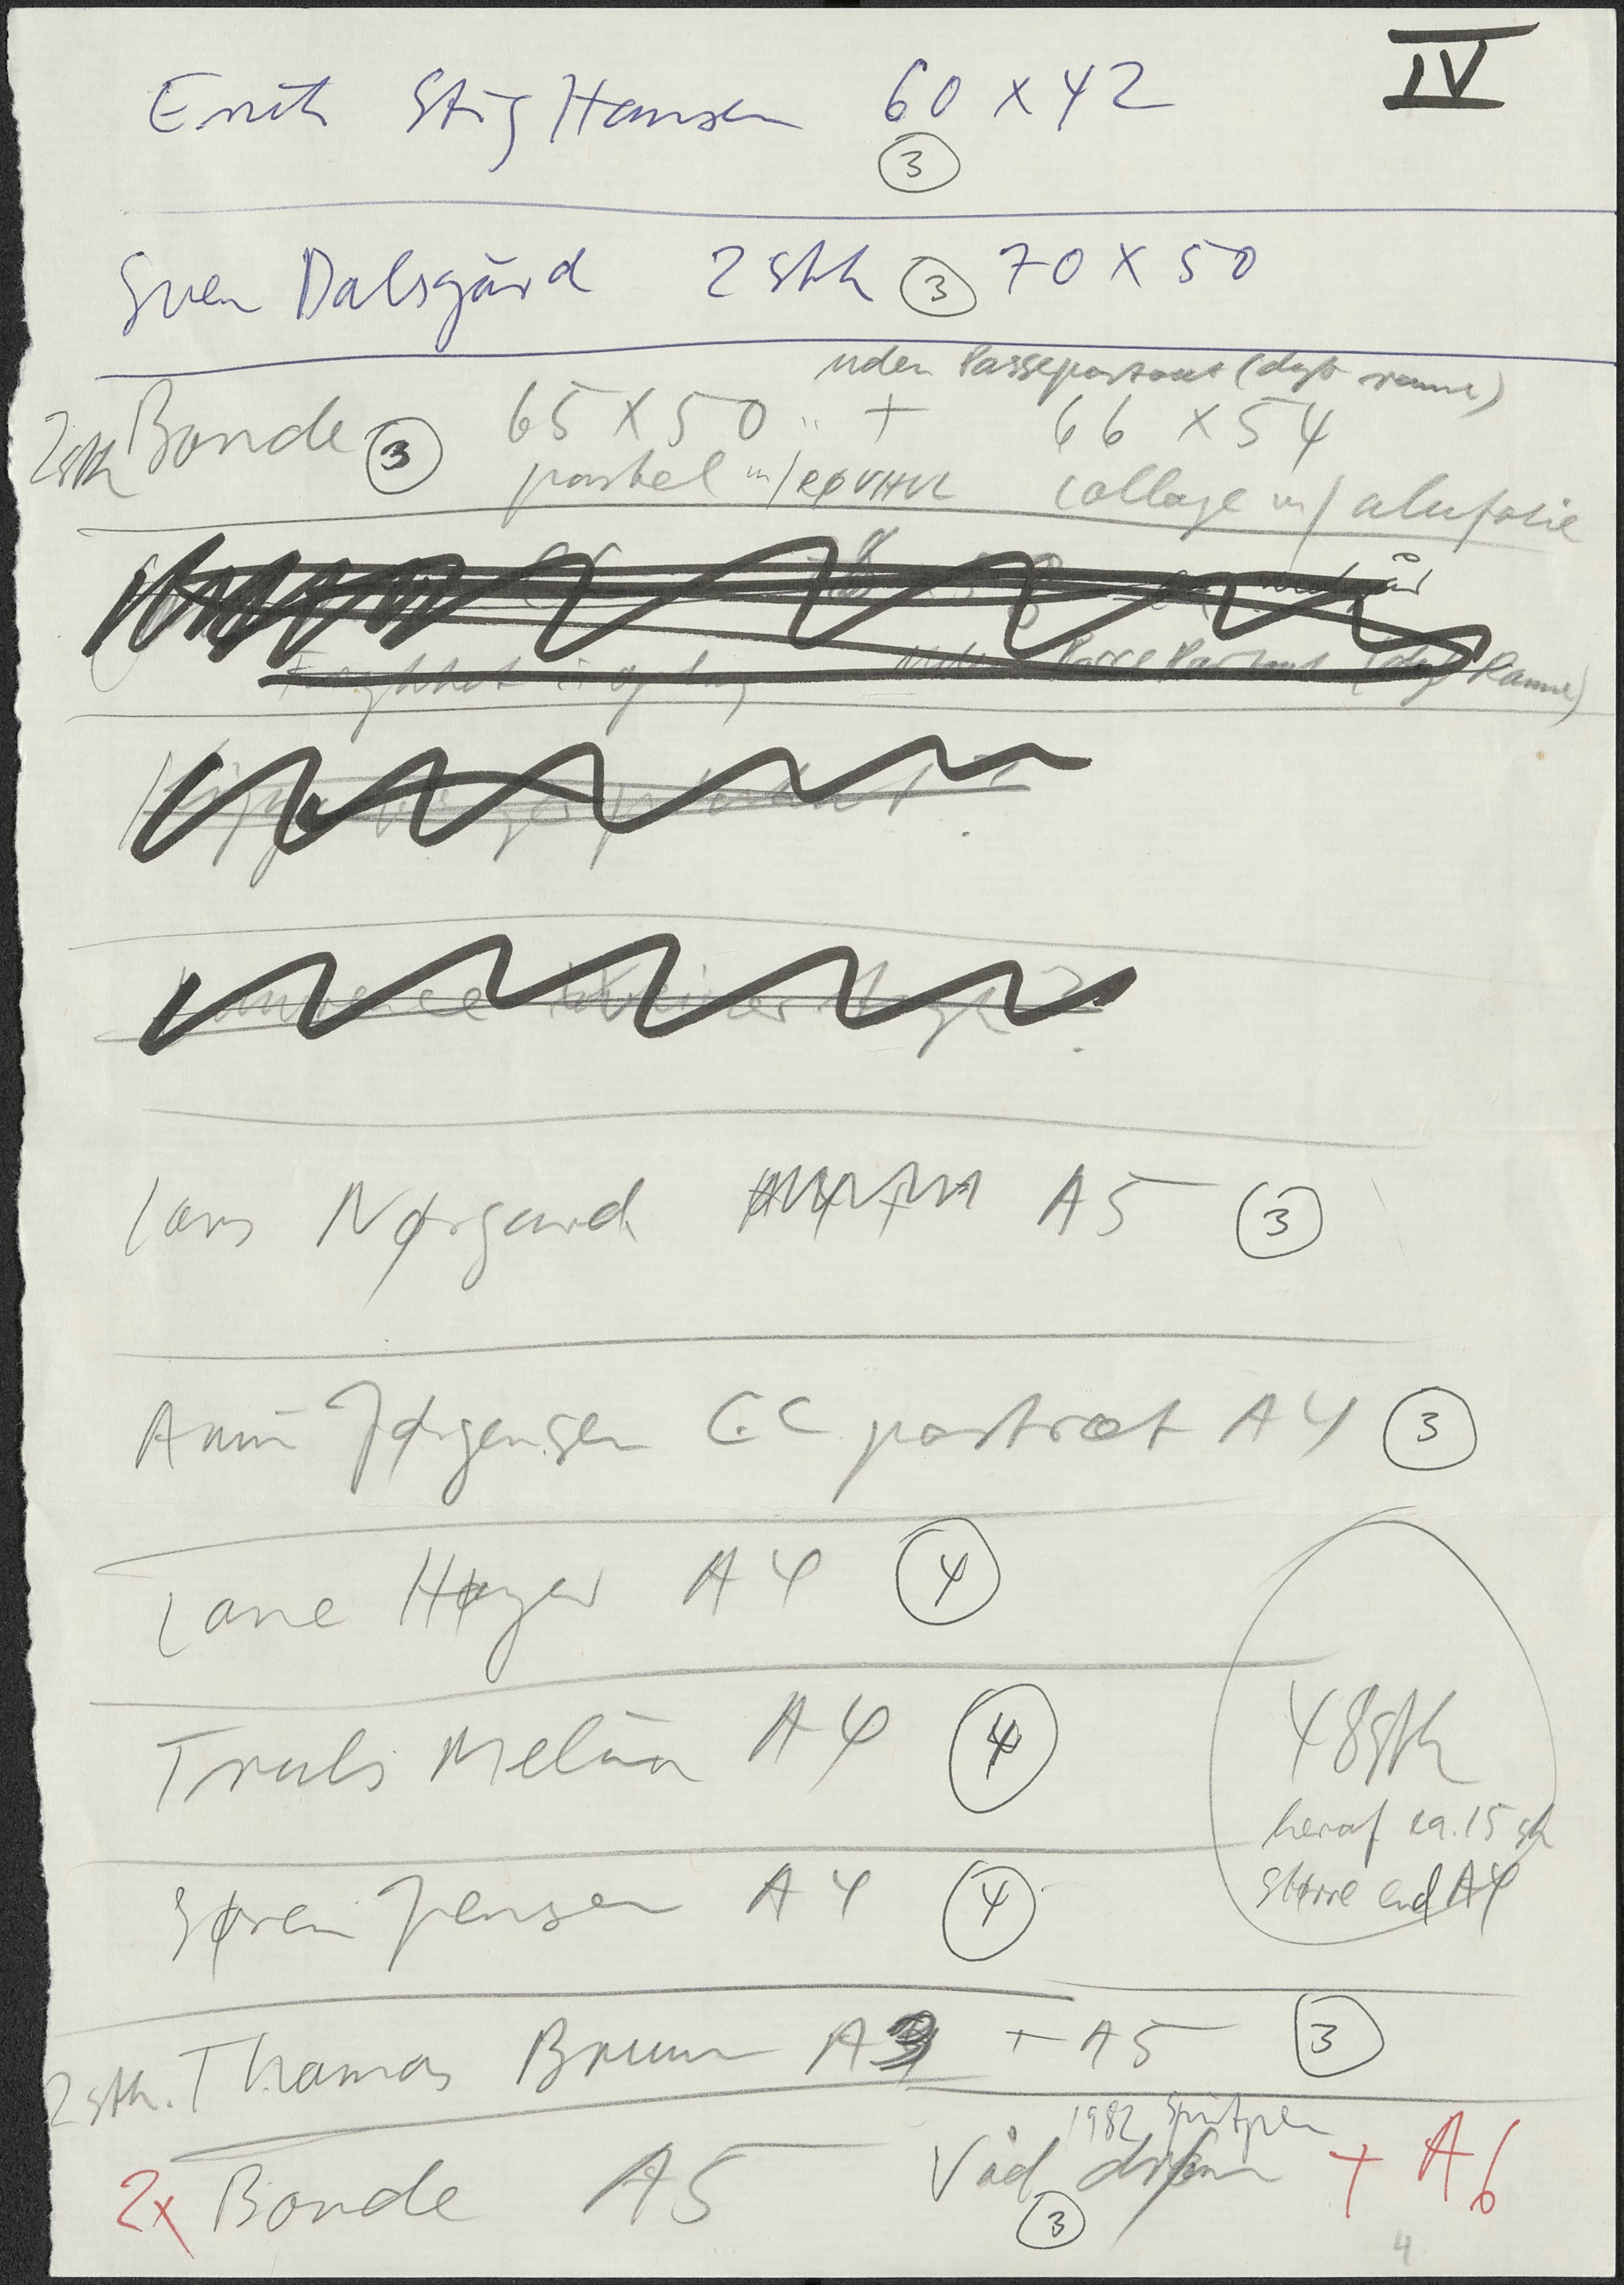 IV
Erik Stig Hansen 60 x 42
3
Sven Dalsgård 2 stk 3 70 x 50
uden Passepartout (dyb ramme)
2stk Bonde 3 65 x 50 + 66 x 54
pastel m/ collage m/ alufolie
Passe Partout (dyb Ramme)
Lars Nørgaard A5 3
Anni Jørgensen CC portræt A4 3
Lone Høyer A4 4
Truls Melin A4 4
48stk
heraf ca. 15 stk
større end A4
Søren Jensen A4 4
2 stk. Thomas Bruun A3 + A5 3
1982 Spritpen
2x Bonde A5 Våd drøm + A6
3
4